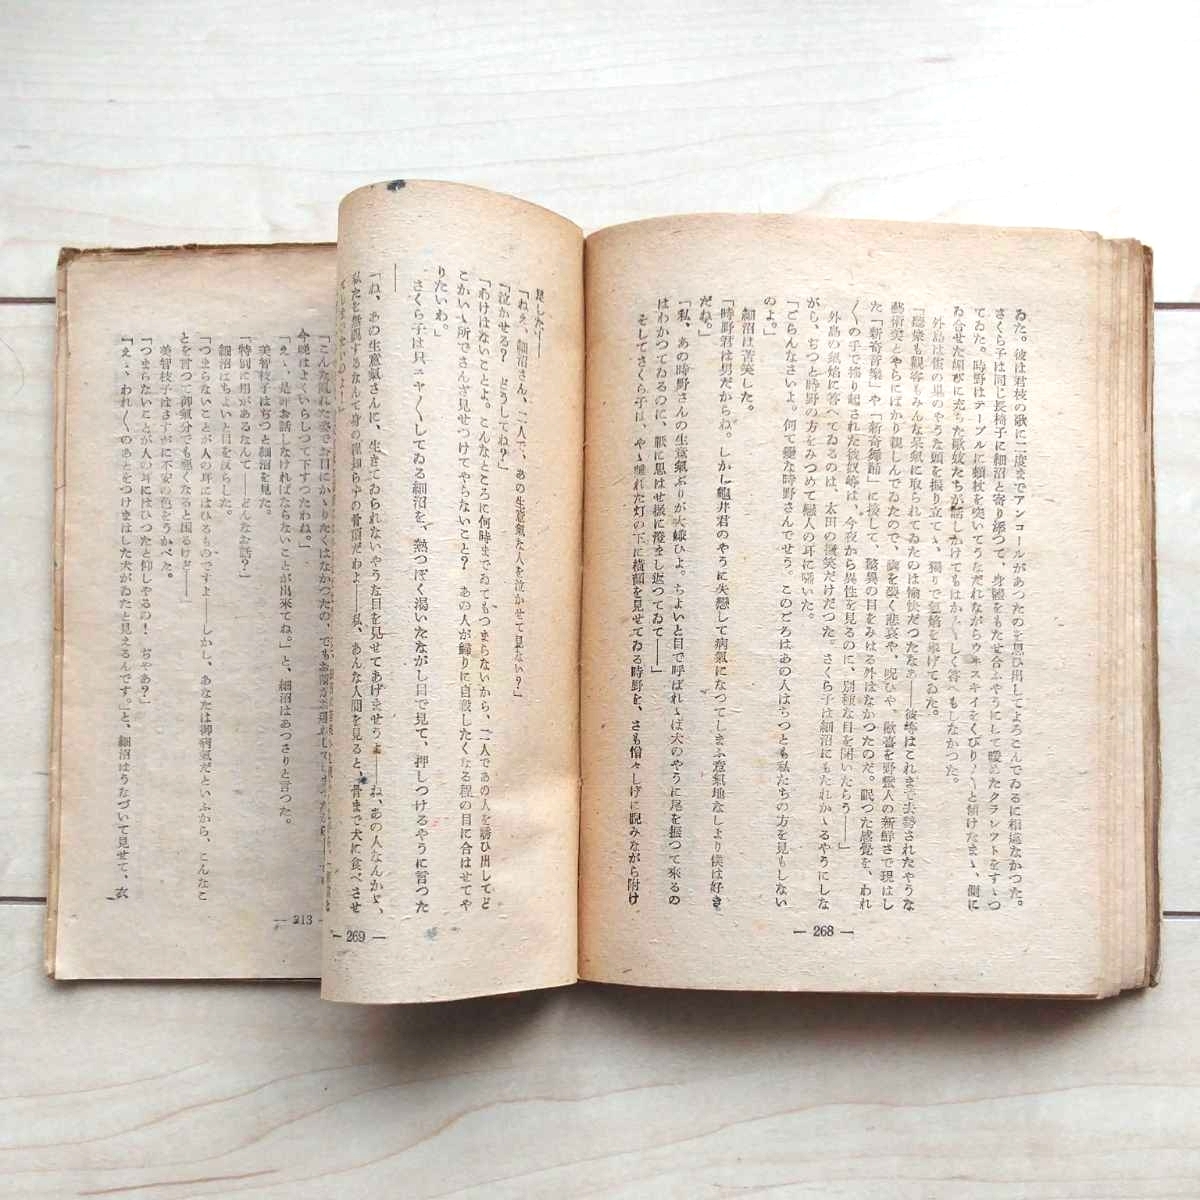 ゐた。彼は君枝の歌に二度までアンコールがあつたのを思ひ出してよろこんでゐるに相違なかつた。
さくら子は同じ長椅子に細沼と寄り添つて、身體をもたせ合ふやうにして暖めたクラレツトをすゝつ
てゐた。時野はテーブルに頰杖を突いてうなだれながらウヰスキイをぐびり〳〵と傾けたまゝ、側に
ゐ合せた媚びに充ちた歌妓たちが話しかけてもはか〴〵しく答へもしなかつた。
外島は後の黒のやうな頭を振り立てゝ、獨りで氣焰を擧げてゐた。
「聽衆も觀客もみんな呆氣に取られてゐたのは愉快だつたなあ――彼等はこれまで去勢されたやうな
藝術笑とやらにばかり親しんでゐたので、胸を裂く悲哀や、呪ひや、歡喜を野蠻人の新鮮さで現はし
た「新奇音樂」や「新奇舞踊」に接して、驚異の目をみはる外はなかつたのだ。眠つた感覺を、われ
〳〵の手で搖り起された彼奴等は、今夜から異性を見るのに、別種な目を開いたらう――」
外島の氣焰に答へてゐるのは、太田の微笑だけだつた。さくら子は細沼にもたれかゝるやうにしな
がら、ぢつと時野の方をみつめて戀人の耳に囁いた。
「ごらんなさいよ。何て變な時野さんでせう。このごろはあの人はちつとも私たちの方を見もしない
のよ。」
細沼は苦笑した。
「時野君は男だからね。しかし龜井君のやうに失戀して病氣になつてしまふ意氣地なしより僕は好き
だね。」
「私、あの時野さんの生意氣ぶりが大嫌ひよ。ちよいと目で呼ばれゝば犬のやうに尾を振つて來るの
はわかつてゐるのに、厭に思はせ振に澄まし返つてゐて――」
そしてさくら子は、やゝ離れた灯の下に橫顏を見せてゐる時野を、さも憎々しげに睨みながら附け
— 268 —
足した――
「ねえ、細沼さん、二人で、あの生意氣な人を泣かせて見ない？」
「泣かせる？　どうしてね？」
「わけはないことよ。こんなところに何時までゐてもつまらないから、二人であの人を誘ひ出してど
こかいゝ所でさんざ見せつけてやらないこと？　あの人が歸りに自殺したくなる程の目に合はせてや
りたいわ。」
さくら子は只ニヤ〳〵してゐる細沼を、熱つぽく渴いたながし目で見て、押しつけるやうに言つた
――
「ね、あの生意氣さんに、生きてゐられないやうな目を見せてあげませうよ――ね、あの人なんかと、
私たを無視するなんて身の程知らずの骨頂だわよ――私、あんな人間を見ると、骨まで犬に食べさせ
てしまひたいのよ！」
— 269 —
「こんな亂れた姿でお目にかゝりたくはなかつたの、でもお
今晚はよくいらしつて下すつたわね。」
「えゝ、是非お話しなければならないことが出來てね」と、細沼はあつさりと言つた。
美智枝子はぢつと細沼を見た。
「特別に用があるなんて――どんなお話？」
細沼はちよいと目を反らした。
「つまらないことが人の耳にはひるものですよ――しかし、あなたは御病氣だといふから、こんなこ
とを言つて御氣分でも惡くなると困るけど――」
美智枝子はさすがに不安の色をうかべた。
「つまらないことが人の耳にはひつたと仰しやるの！　ぢやあ？」
「えゝ、われ〳〵のあとをつけまはした犬がゐたと見えるんです。」と、細沼はうなづいて見せて、衣
— 213 —